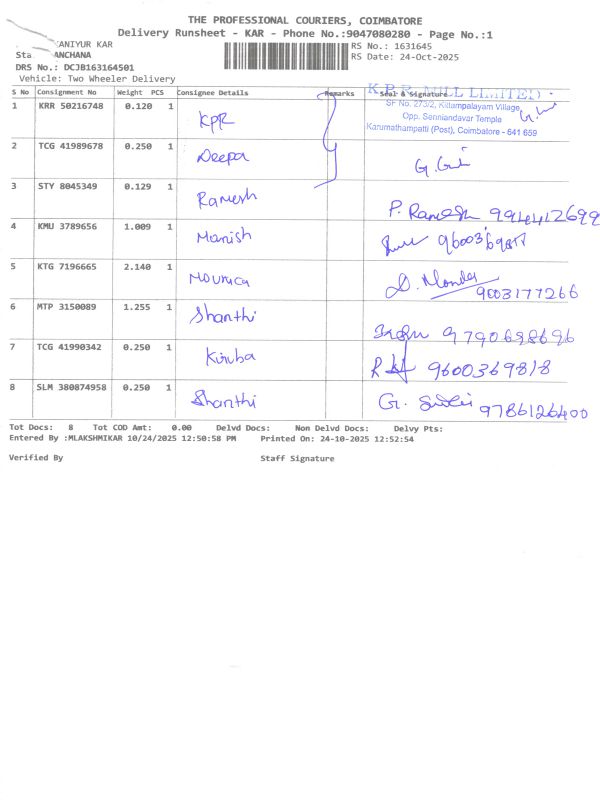 THE PROFESSIONAL COURIERS, COIMBATORE
Delivery Runsheet - KAR - Phone No.:9047080280 - Page No.:1
ANIYUR KAR
RS No.: 1631645
Sta ANCHANA
RS Date: 24-Oct-2025
DRS No.: DCJB163164501
Vehicle: Two Wheeler Delivery
S No Consignment No Weight PCS Consignee Details Remarks Seal & Signature
K.P.R. MILL LIMITED
SF No. 273/2, Kittampalayam Village
Opp. Senniandavar Temple
Karumathampatti (Post), Coimbatore - 641 659
1 KRR 50216748 0.120 1 KPR
2 TCG 41989678 0.250 1 Deepa
3 STY 8045349 0.129 1 Ramesh P. Ramesh
4 KMU 3789656 1.009 1 Manish
5 KTG 7196665 2.140 1 Mounica 9003177266
6 MTP 3150089 1.255 1 Shanthi 9790698696
7 TCG 41990342 0.250 1 Kiruba 9600369818
8 SLM 380874958 0.250 1 Shanthi 9786126400
Tot Docs: 8 Tot COD Amt: 0.00 Delvd Docs: Non Delvd Docs: Delvy Pts:
Entered By :MLAKSHMIKAR 10/24/2025 12:50:58 PM Printed On: 24-10-2025 12:52:54
Verified By Staff Signature